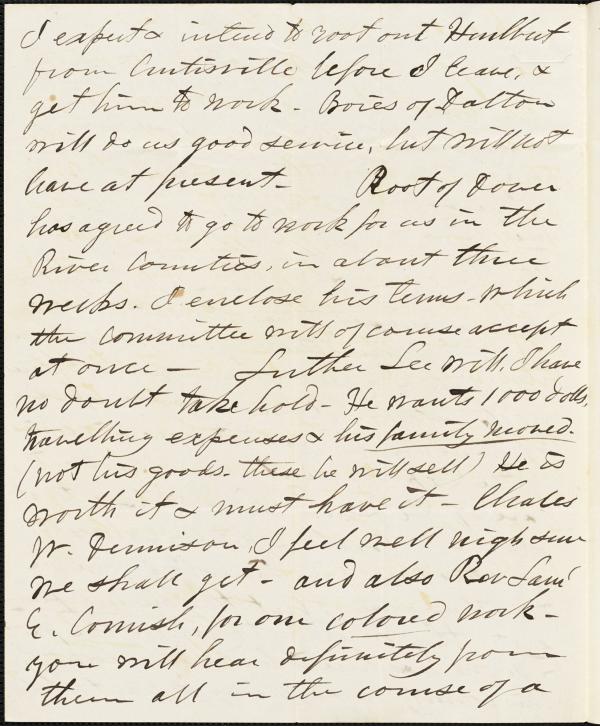 I expect & intend to root out Hurlbut
from Curtisville before I leave, &
get him to work - Boies of Dalton
will do us good service, but will not
leave at present - Root of Dover
has agreed to go to work for us in the
River Counties, in about three
weeks. I enclose his terms - which
the committee will of course accept
at once - Luther Lee will, I have
no doubt take hold - He wants 1000 dolls,
travelling expenses & his family moved.
(not his goods - these he will sell) He is
worth it & must have it - Charles
W. Dennison, I feel well nigh sure
we shall get - and also Rev Saml
E. Cornish, for our colored work -
you will hear definitely from
them all in the course of a